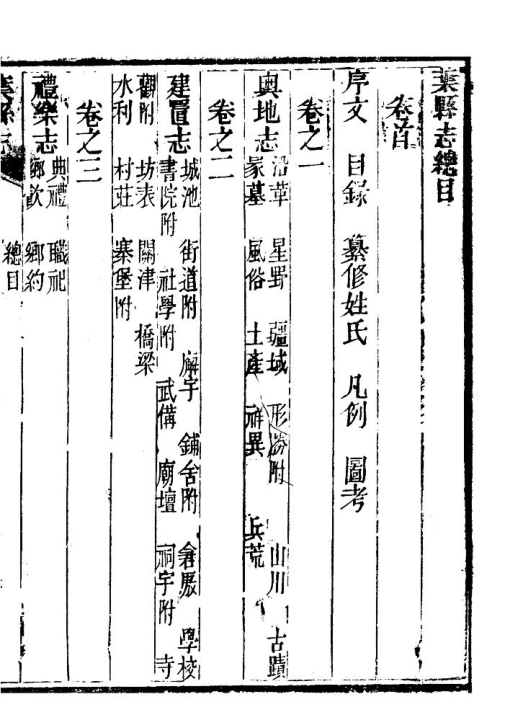 葉縣志總目
卷首
序文 目錄 纂修姓氏 凡例 圖考
卷之一
輿地志 沿革 星野 疆域 形勝附 山川 古蹟
冢墓 風俗 土產 祥異 兵荒
卷之二
建置志 城池 街道附 廨宇 鋪舍附 倉廒 學校
書院附 社學附 武備 廟壇 祠宇附 寺
觀附 坊表 關津 橋梁
水利 村莊 寨堡附
卷之三
禮樂志 典禮 職祀
鄉飲 鄉約
葉縣志 總目